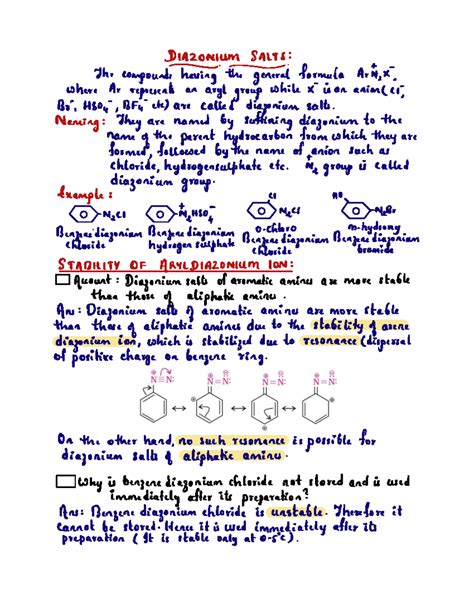 DIAZONIUM SALTS:
The compounds having the general formula ArN₂⁺X⁻,
where Ar represent an aryl group while X⁻ is an anion (Cl⁻,
Br⁻, HSO₄⁻, BF₄⁻ etc) are called diazonium salts.
Naming: They are named by suffixing diazonium to the
name of the parent hydrocarbon from which they are
formed, followed by the name of anion such as
chloride, hydrogensulphate etc. N₂⁺ group is called
diazonium group.
Example:
Cl HO
N₂Cl N₂HSO₄ N₂Cl N₂Br
Benzenediazonium chloride
Benzenediazonium hydrogen sulphate
o-chloro Benzenediazonium chloride
m-hydroxy Benzenediazonium bromide
STABILITY OF ARYLDIAZONIUM ION:
Account: Diazonium salts of aromatic amines are more stable
than those of aliphatic amines.
Ans: Diazonium salts of aromatic amines are more stable
than those of aliphatic amines due to the stability of arene
diazonium ion, which is stabilized due to resonance (dispersal
of positive charge on benzene ring.
N≡N: N=N: N=N: N=N:
On the other hand, no such resonance is possible for
diazonium salts of aliphatic amines.
Why is benzene diazonium chloride not stored and is used
immediately after its preparation?
Ans: Benzene diazonium chloride is unstable. Therefore it
cannot be stored. Hence it is used immediately after its
preparation (It is stable only at 0-5°C).